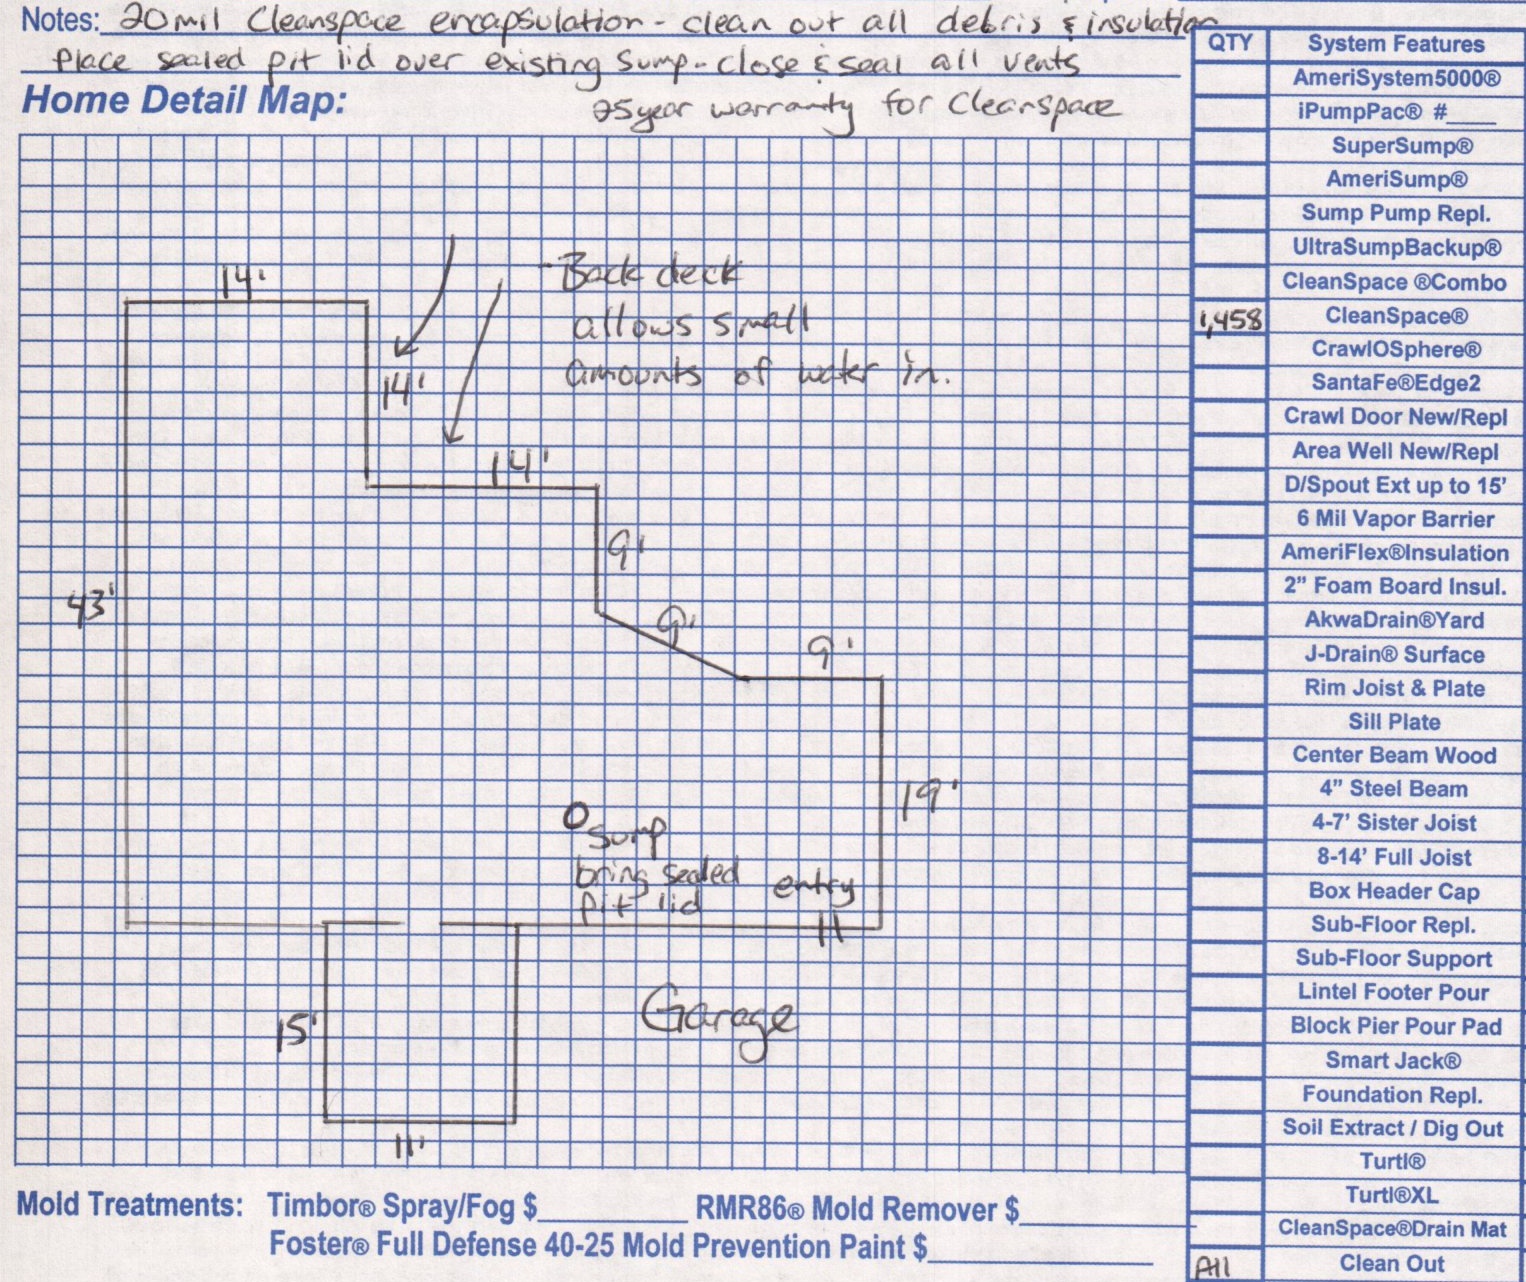 Notes: 20mil Cleanspace encapsulation - clean out all debris & insulation
Place sealed pit lid over existing sump - close & seal all vents
Home Detail Map:
25year warranty for Cleanspace
14'
-Back deck
allows small
amounts of water in.
14'
14'
9'
43'
9'
9'
19'
O Sump
bring sealed
pit lid
entry
15'
Garage
11'
Mold Treatments: Timbor® Spray/Fog $________ RMR86® Mold Remover $________
Foster® Full Defense 40-25 Mold Prevention Paint $________
QTY System Features
AmeriSystem5000®
iPumpPac® #____
SuperSump®
AmeriSump®
Sump Pump Repl.
UltraSumpBackup®
CleanSpace ®Combo
1,458 CleanSpace®
CrawlOSphere®
SantaFe®Edge2
Crawl Door New/Repl
Area Well New/Repl
D/Spout Ext up to 15’
6 Mil Vapor Barrier
AmeriFlex®Insulation
2” Foam Board Insul.
AkwaDrain®Yard
J-Drain® Surface
Rim Joist & Plate
Sill Plate
Center Beam Wood
4” Steel Beam
4-7’ Sister Joist
8-14’ Full Joist
Box Header Cap
Sub-Floor Repl.
Sub-Floor Support
Lintel Footer Pour
Block Pier Pour Pad
Smart Jack®
Foundation Repl.
Soil Extract / Dig Out
Turtl®
Turtl®XL
CleanSpace®Drain Mat
All Clean Out